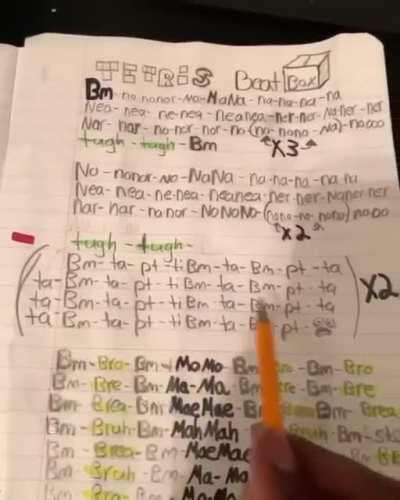 TETRIS Beat Box
Bm-no-nonor-No-NaNa-na-na-na-na
Nea-nea-ne-nea-neanea-ner-ner-Naner-ner
Nar-nar-no-nor-no-(na-nono-Na)-nooo
tugh-tugh-Bm X3
No-nonor-No-NaNa-na-na-na-na
Nea-nea-ne-nea-neanea-ner-ner-Naner-ner
nar-nar-no nor-NoNoNo-(nono-no-nono)nooo
X2
tugh-tugh-
Bm-ta-pt-tiBm-ta-Bm-pt-ta
ta-Bm-ta-pt-tiBm-ta-Bm-pt-ta X2
ta-Bm-ta-pt-tiBm-ta-Bm-pt-ta
ta-Bm-ta-pt-tiBm-ta-B pt-
Bm-Bro-Bm-MoMo-Bm -Bm-Bro
Bm-Bre-Bm-Ma-Ma-Bm Bre-Bm-Bre
Bm-Brea-Bm-MaeMae-B Bm-Brea
Bm-Bruh-Bm-MahMah Bruh-Bm-
Bm-Brea-Bm-MaeMae
Bm-Bruh-Bm-Ma-Ma
Bm-Bro-Bm-